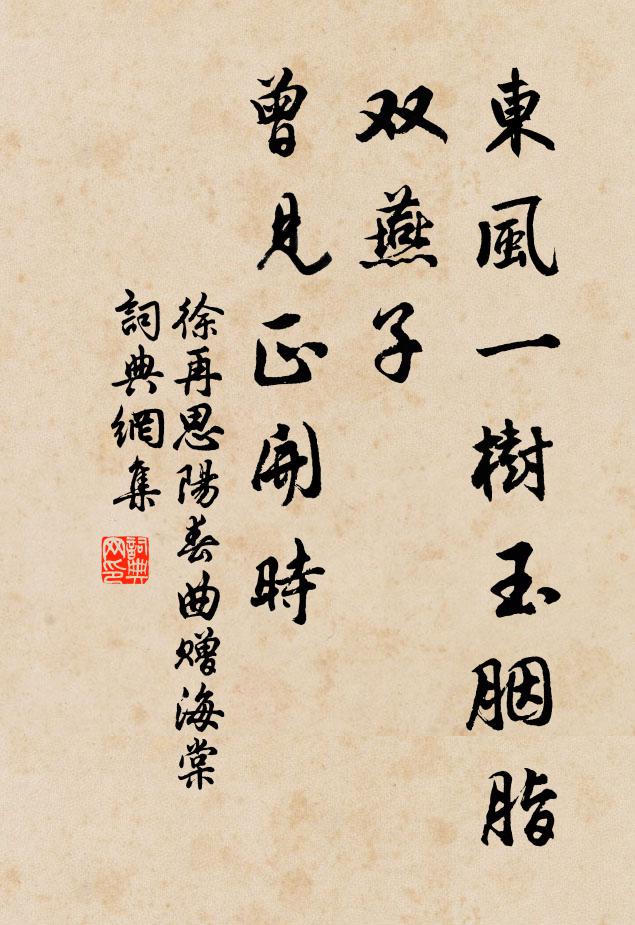 東風一樹玉胭脂
双燕子
曾見正開時
徐再思陽春曲赠海棠
詞典網集
詞典
网印